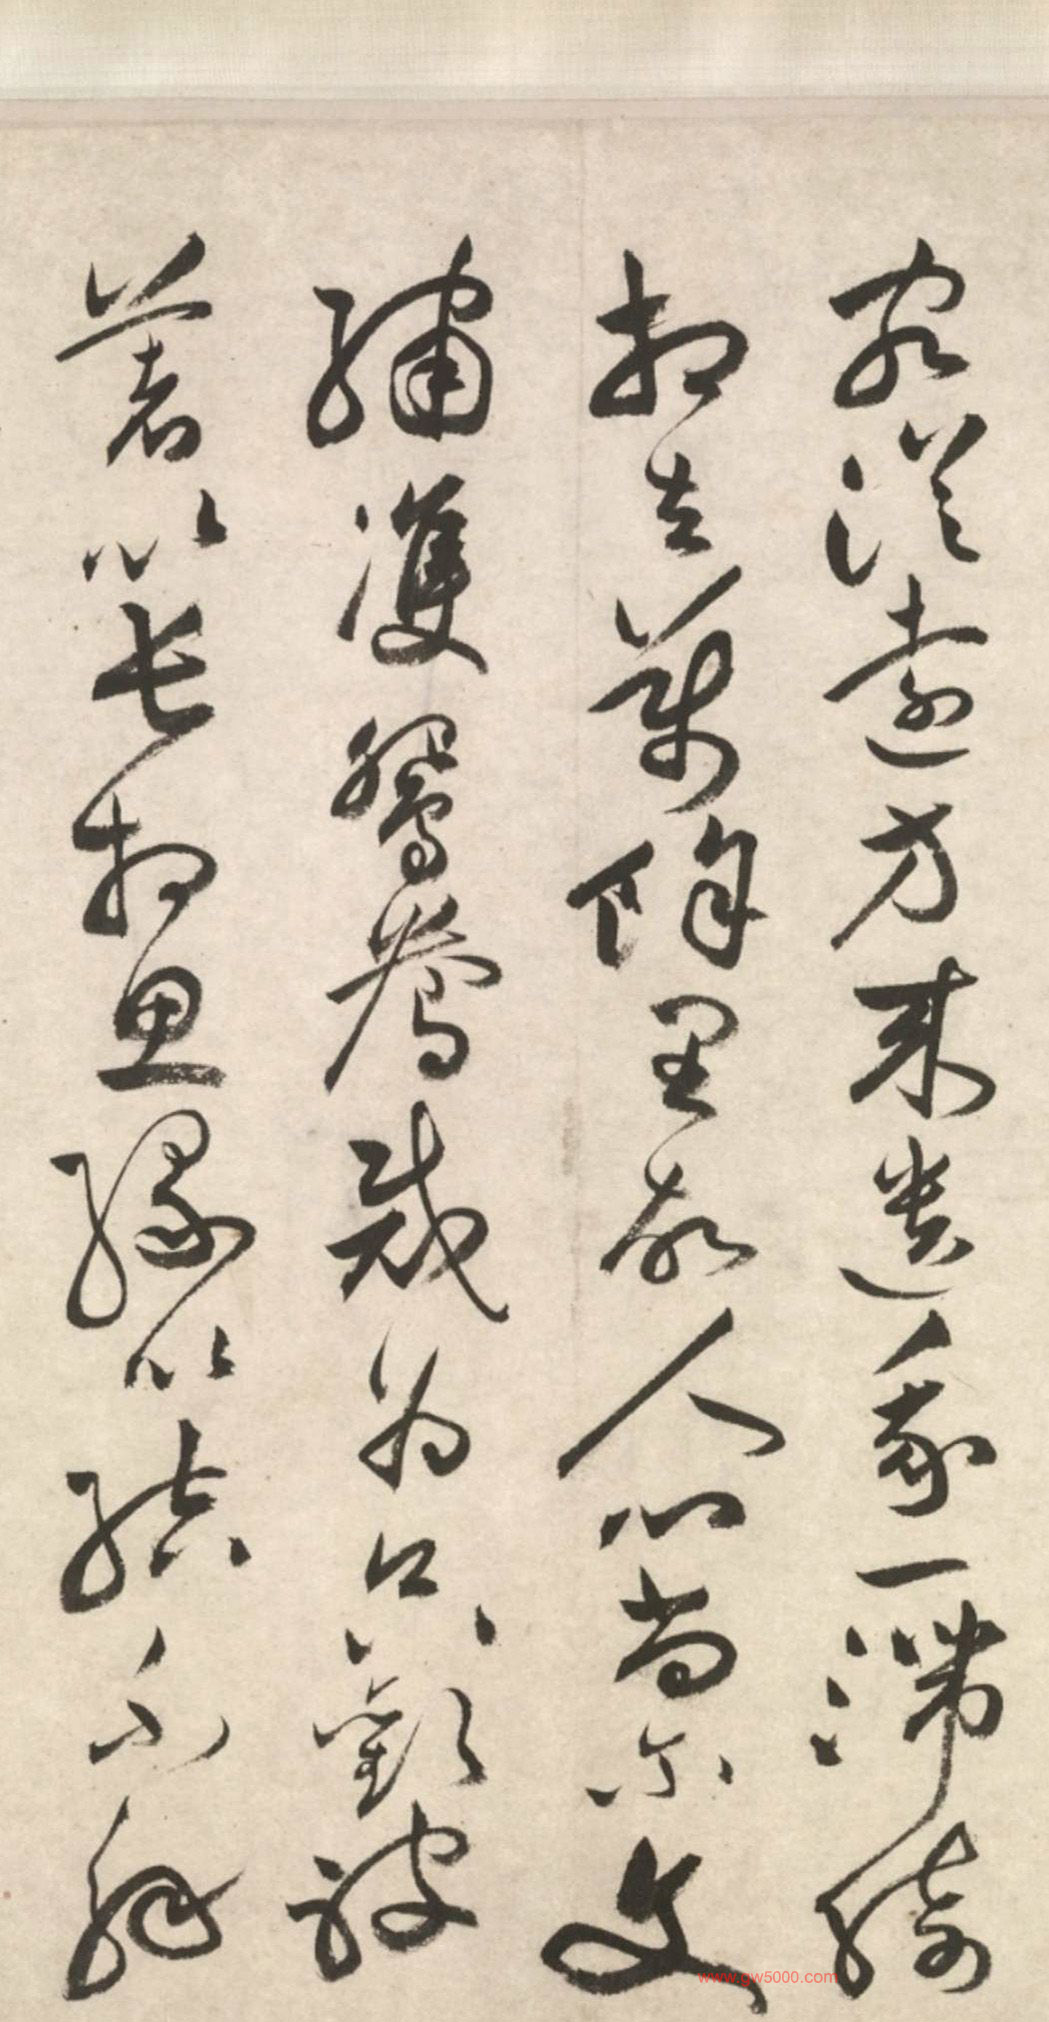 客從遠方來遺我一端綺
相去萬餘里故人心尚爾文
繡雙鴛鴦裁為合歡被
著以長相思緣以結不解
www.gw5000.com